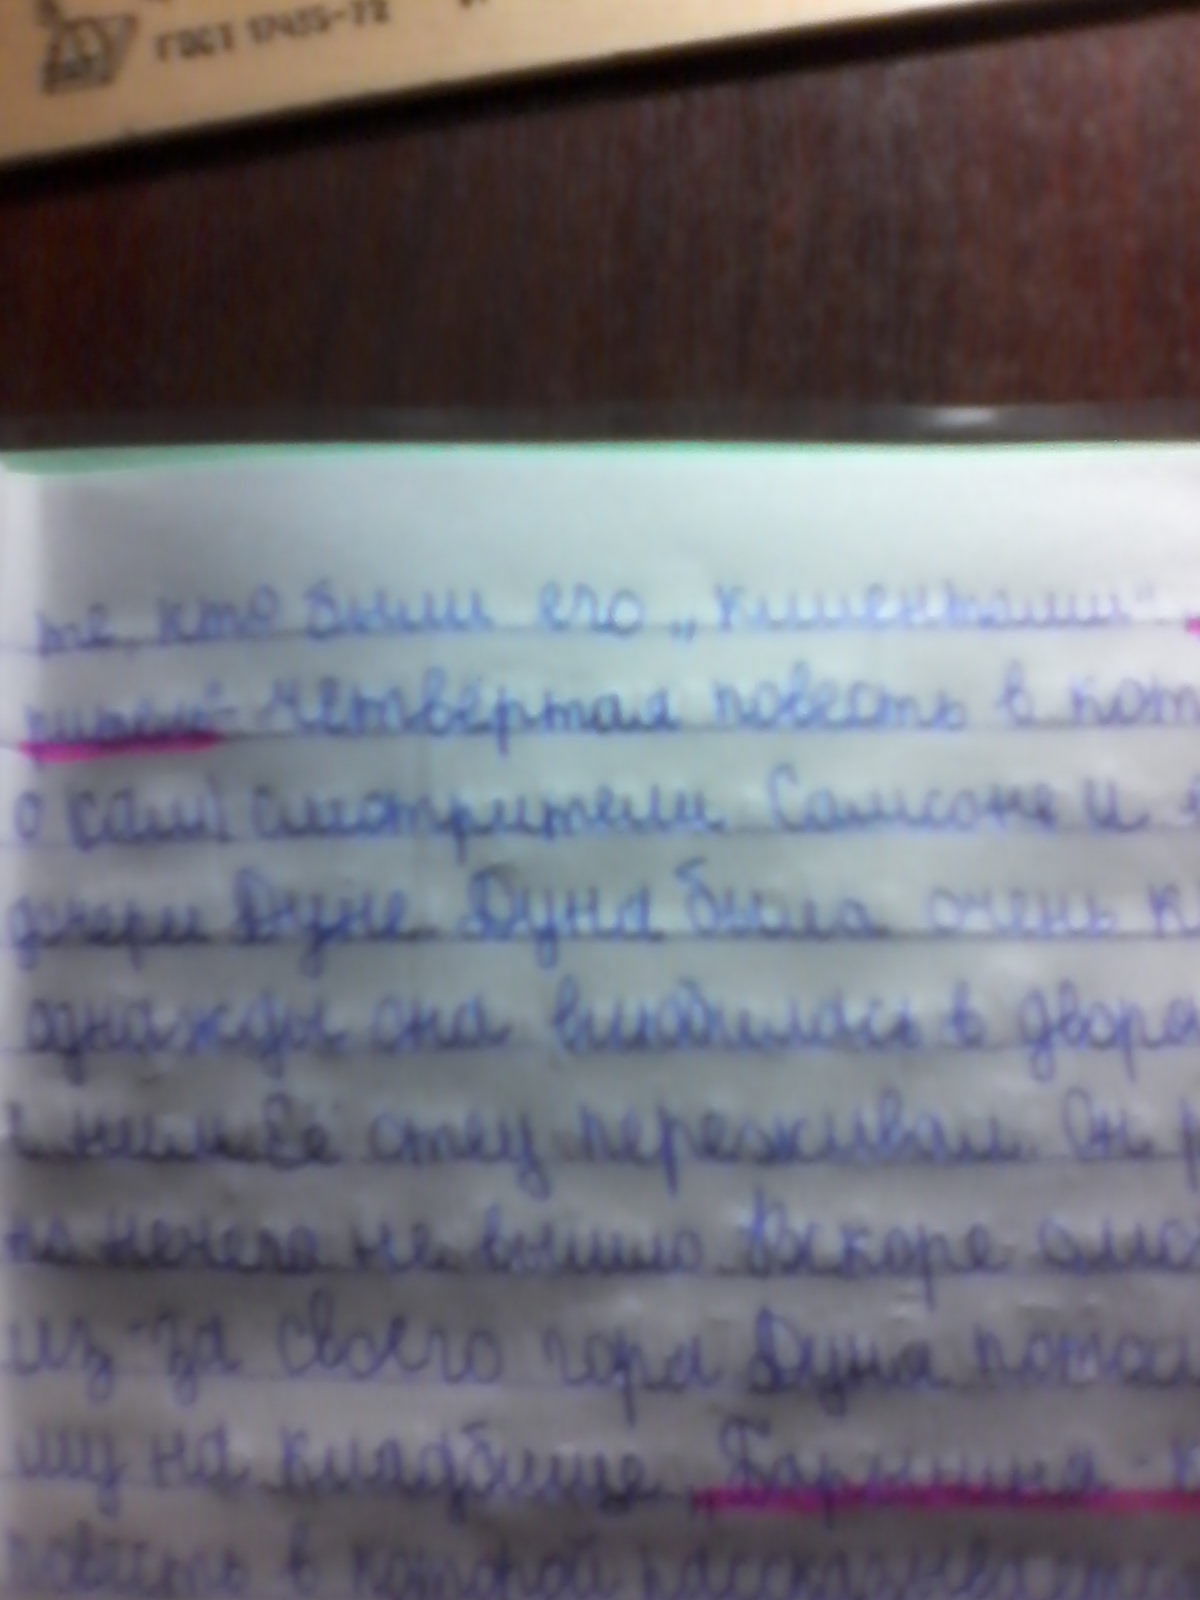 ГОСТ 17435-72
те, кто были его „клиентами“.
четвёртая повесть в кот
о смотрители Самсоне и
дочери Дуне. Дуна была очень к
однажды она влюбилась в дворе
ним. Её отец переживал. Он р
не вышло. Вскоре
из-за своего горя. Дуна
на кладбище. „Барышня-к
повесть в которой рассказывается